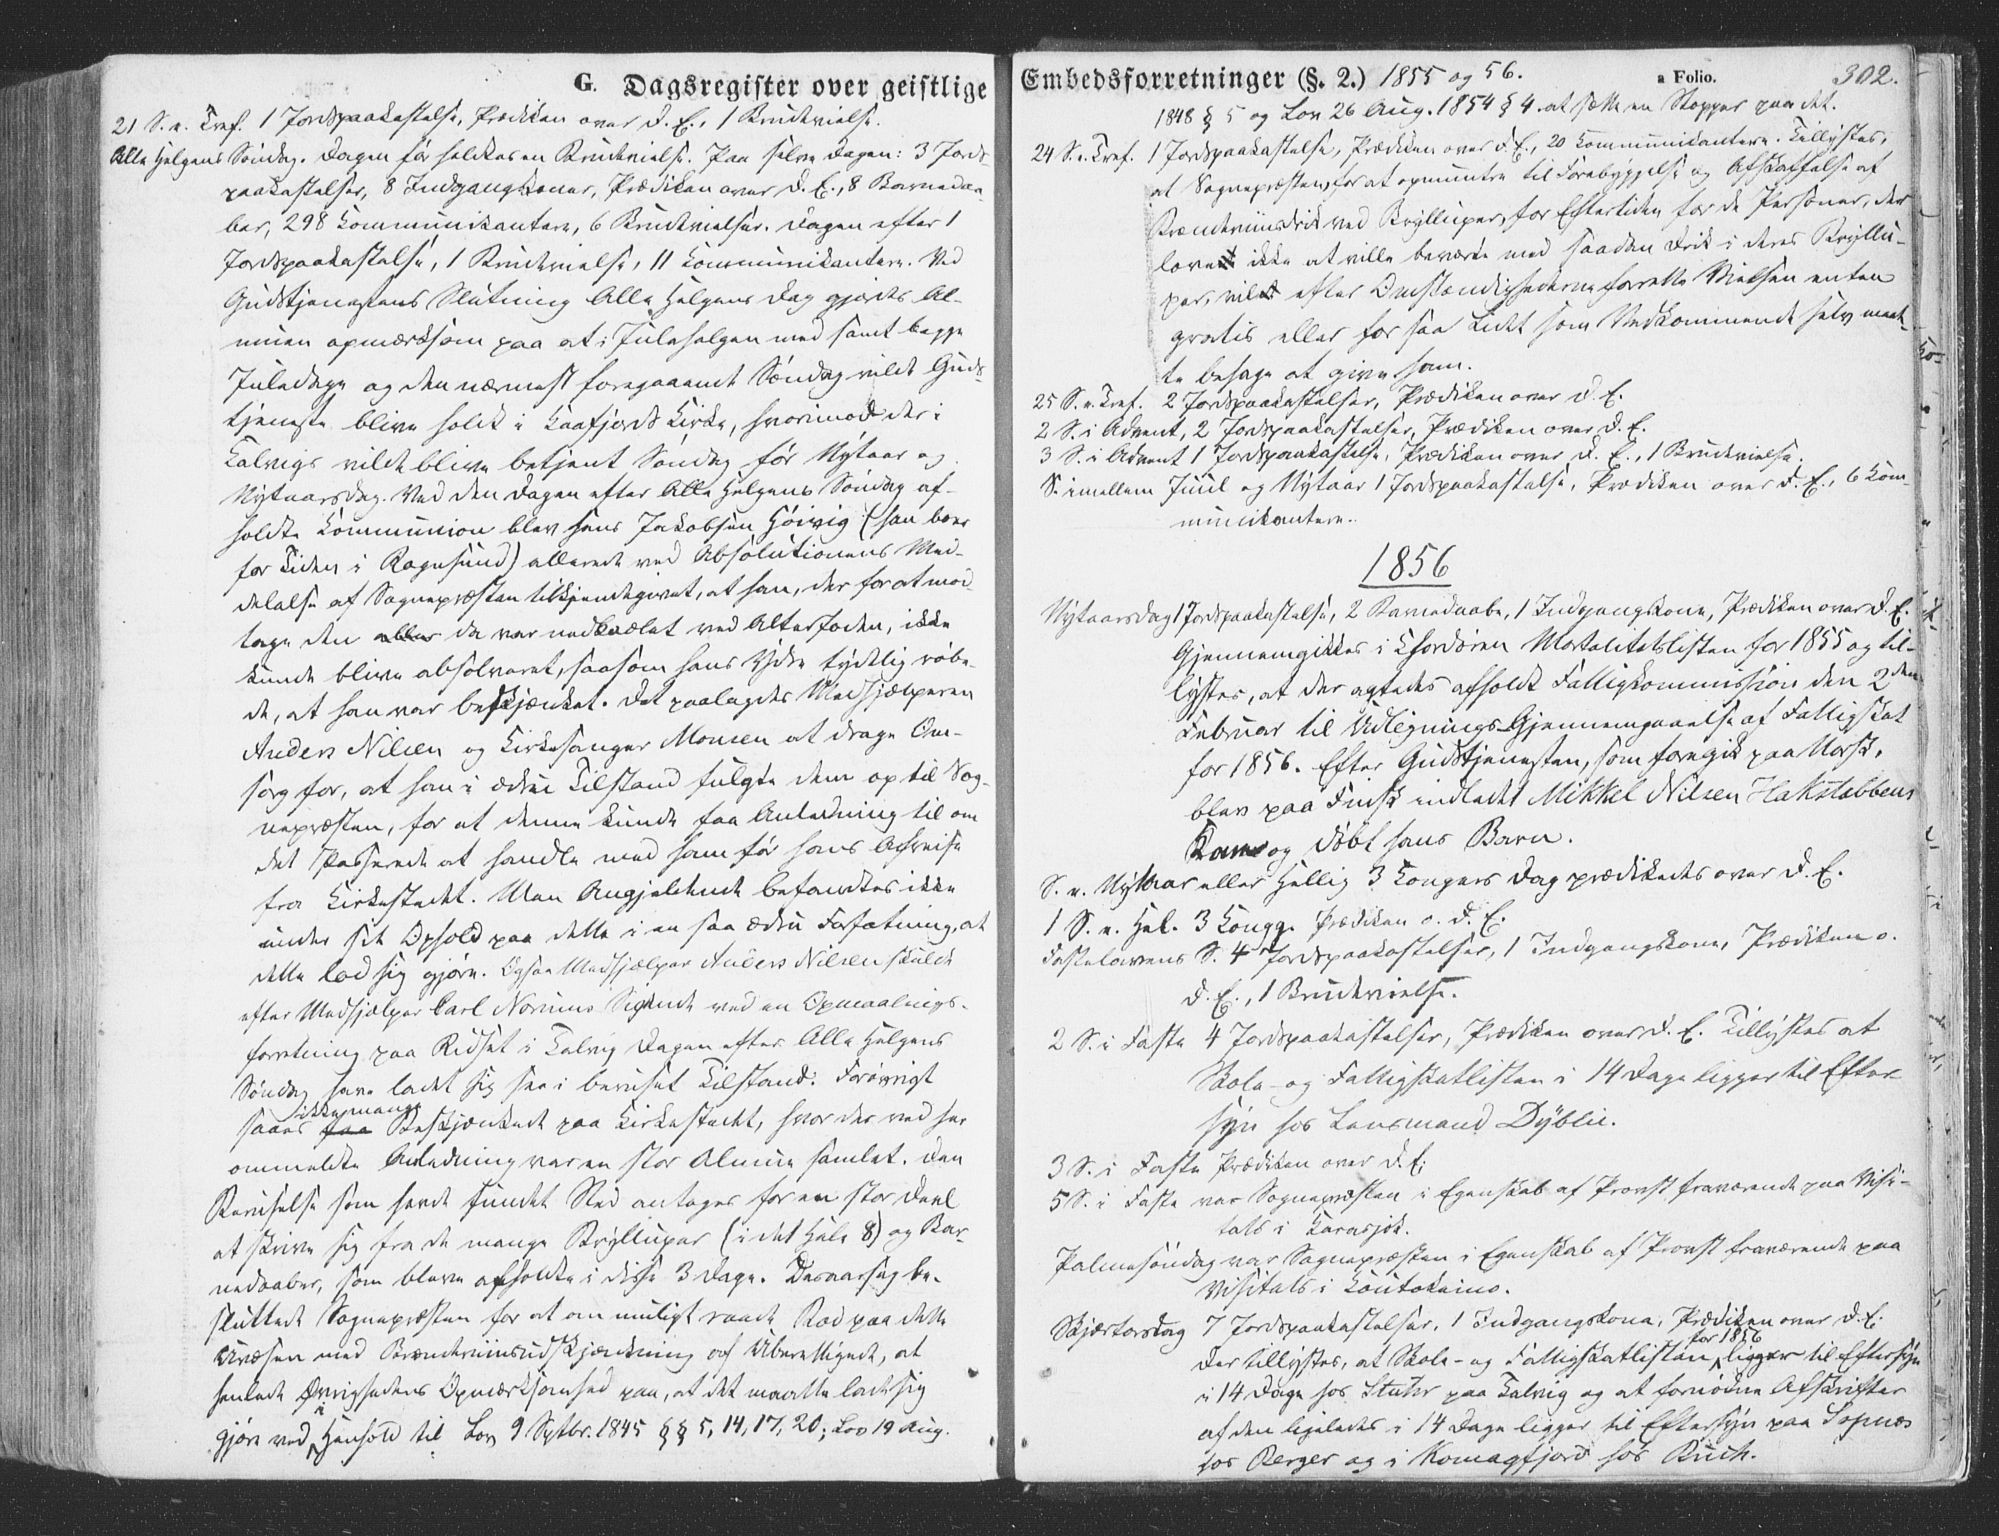 G. Dagsregister over geistlige
21 S. e. Tref. 1 Jordspaakastelse, Prædiken over D. E., 1 Brudevielse.
Alle Helgens Søndag. Dagen før holdtes en Brudevielse. Paa selve Dagen: 3 Jords-
paakastelser, 8 Indgangskoner, Prædiken over D. E., 8 Barnedaa-
ber, 298 Communikantere, 6 Brudevielser. Dagen efter 1
Jordspaakastelse, 1 Brudevielse, 11 Communikantere. Ved
Gudstjenestens Slutning Alle Helgens Dag gjordes Al-
muen opmærksom paa at i Julehelgen med samt begge
Juledage og den nærmest foregaaende Søndag vilde Guds-
tjeneste blive holdt i Kaafjords Kirke, hvorimod der i
Talvigs vilde blive betjent Søndag før Nytaar og
Nytaarsdag. Ved den Dagen efter Alle Helgens Søndag af-
holdte Communion blev Hans Jakobsen Høivig (han boer
for Tiden i Rognsund) allerede ved Absolutionens Med-
delelse af Sognepræsten tilkjendegivet, at han, der for at mod-
tage den da var nedknælet ved Alterfoden, ikke
kunde blive absolveret, saasom hans Ydre tydelig røbe-
de, at han var beskjænket. Det paalagdes Medhjælperen
Anders Nilsen og Kirkesanger Monsen at drage Om-
sorg for, at han i ædru Tilstand fulgte dem op til Sog-
nepræsten, for at denne kunde faa Anledning til om
det Passerede at handle med ham før hans Afreise
fra Kirkestedet. Men Angjeldende befandtes ikke
under sit Ophold paa dette i en saa ædru Forfatning, at
dette lod sig gjøre. Ogsaa Medhjælper Anders Nilsen skulde
efter Medhjælper Carl Norums Sigende ved en Opmaalings-
forretning paa Ridset i Talvig Dagen efter Alle Helgens
Søndag have ladet sig see i beruset Tilstand. Forøvrigt
ikke mange
saaes faa Beskjænkede paa Kirkestedet, hvor der ved her
ommeldte Anledning var en stor Almue samlet. Den
Beruselse som havde fundet Sted antages for en stor Deel
at skrive sig fra de mange Bryllupper (i det Hele 8) og Bar-
nedaaber, som bleve afholdte i disse 3 Dage. Desaarsag be-
sluttede Sognepræsten for at om muligt raade Bod paa dette
Uvæsen med Brændeviinsudskjænkning af Uberettigede, at
henlede Øvrighedens Opmærksomhed paa, at det maatte lade sig
gjøre ved i Henhold til Lov 9 Sptbr. 1845 §§ 5, 14, 17, 20; Lov 19 Aug.
Embedsforretninger (§. 2.) 1855 og 56.
a Folio. 302.
1848 § 5 og Lov 26 Aug. 1854 § 4. at sætte en Stopper paa det.
24 S. e. Tref. 1 Jordspaakastelse, Prædiken over D. E., 20 Communikantere. Tillystes,
at Sognepræsten, for at opmuntre til Forebyggelse og Afskaffelse af
Brændeviinsdrik ved Brylluper, for Eftertiden for de Personer, der
lovede ikke at ville beværte med saadan Drik i deres Bryllu-
per, vilde efter Omstændighederne forrette Vielsen enten
gratis eller for saa Lidt som Vedkommende selv maat-
te behage at give ham.
25 S. e. Tref. 2 Jordspaakastelser, Prædiken over D. E.
2 S. i Advent, 2 Jordspaakastelser, Prædiken over D. E.
3 S. i Advent 1 Jordspaakastelse, Prædiken over D. E., 1 Brudevielse.
S. imellem Juul og Nytaar 1 Jordspaakastelse, Prædiken over D. E., 6 Com-
munikantere.
1856
Nytaarsdag 1 Jordspaakastelse, 2 Barnedaabe, 1 Indgangskone, Prædiken over D. E.
Gjennemgikkes i Chordøren Mortalitetslisten for 1855 og til-
lystes, at der agtedes afholdt Fattigkommission den 2den
Februar til Udlignings-Gjennemgaaelse af Fattigskat
for 1856. Efter Gudstjenesten, som foregik paa Norsk,
blev paa Finsk indledet Mikkel Nilsen Hakstabbens
Kone og døbt hans Barn.
S. e. Nytaar eller Hellig 3 Kongers Dag prædikedes over D. E.
1 S. e. Hel. 3 Kongg. Prædiken o. D. E.
Fastelavens S. 4 Jordspaakastelser, 1 Indgangskone, Prædiken o.
D. E., 1 Brudevielse.
2 S. i Faste 4 Jordspaakastelser, Prædiken over D. E. Tillystes at
Skole- og Fattigskatlisten i 14 Dage ligger til Efter-
syn hos Lensmand Dyblie.
3 S. i Faste Prædiken over D. E.
5 S. i Faste var Sognepræsten i Egenskab af Provst fraværende paa Visi-
tats i Karasjok.
Palmesøndag var Sognepræsten i Egenskab af Provst fraværende paa
Visitats i Koutokeino.
Skjærtorsdag 7 Jordspaakastelser, 1 Indgangskone, Prædiken over D. E.
for 1856
Der tillystes, at Skole- og Fattigskatlisten ligger til Eftersyn
i 14 Dage hos Stuhr paa Talvig og at fornødne Afskrifter
af den ligeledes i 14 Dage ligger til Eftersyn paa Sopnæs
hos Berger og i Komagfjord hos Buch.